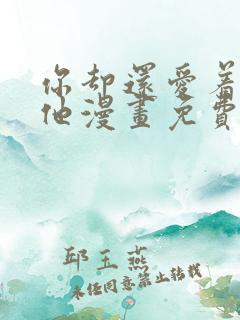 你却還愛着
他漫畫免費
邱玉燕
未经同意禁止转载